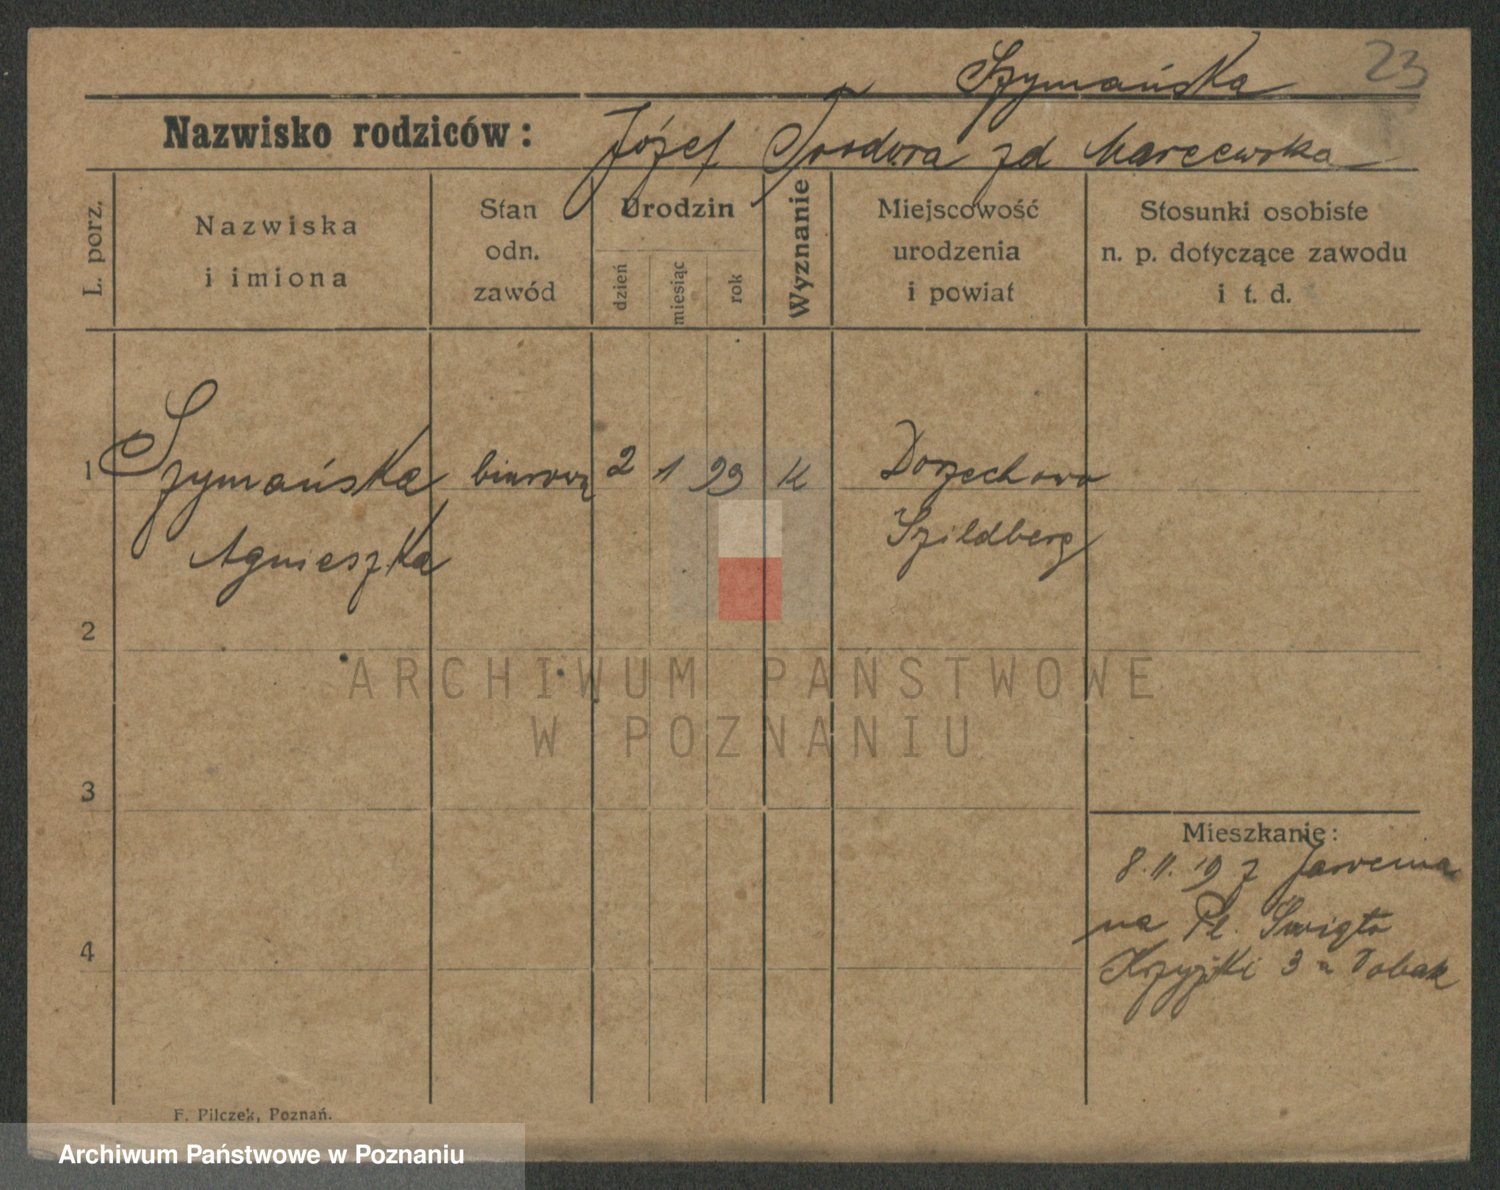 Szymańska 23
Nazwisko rodziców: Józef Teodora zd Marcewska
L. porz.
Nazwiska
i imiona
Stan
odn.
zawód
Urodzin
dzień
miesiąc
rok
Wyznanie
Miejscowość
urodzenia
i powiat
Stosunki osobiste
n. p. dotyczące zawodu
i t. d.
1 Szymańska biurową 2 1 99 K
Agnieszka Szildberg
2
ARCHIWUM PAŃSTWOWE
W POZNANIU
3
Mieszkanie:
8.11.19 z
na Pl. Święto
Krzyzki 3
4
F. Pilczek, Poznań.
Archiwum Państwowe w Poznaniu